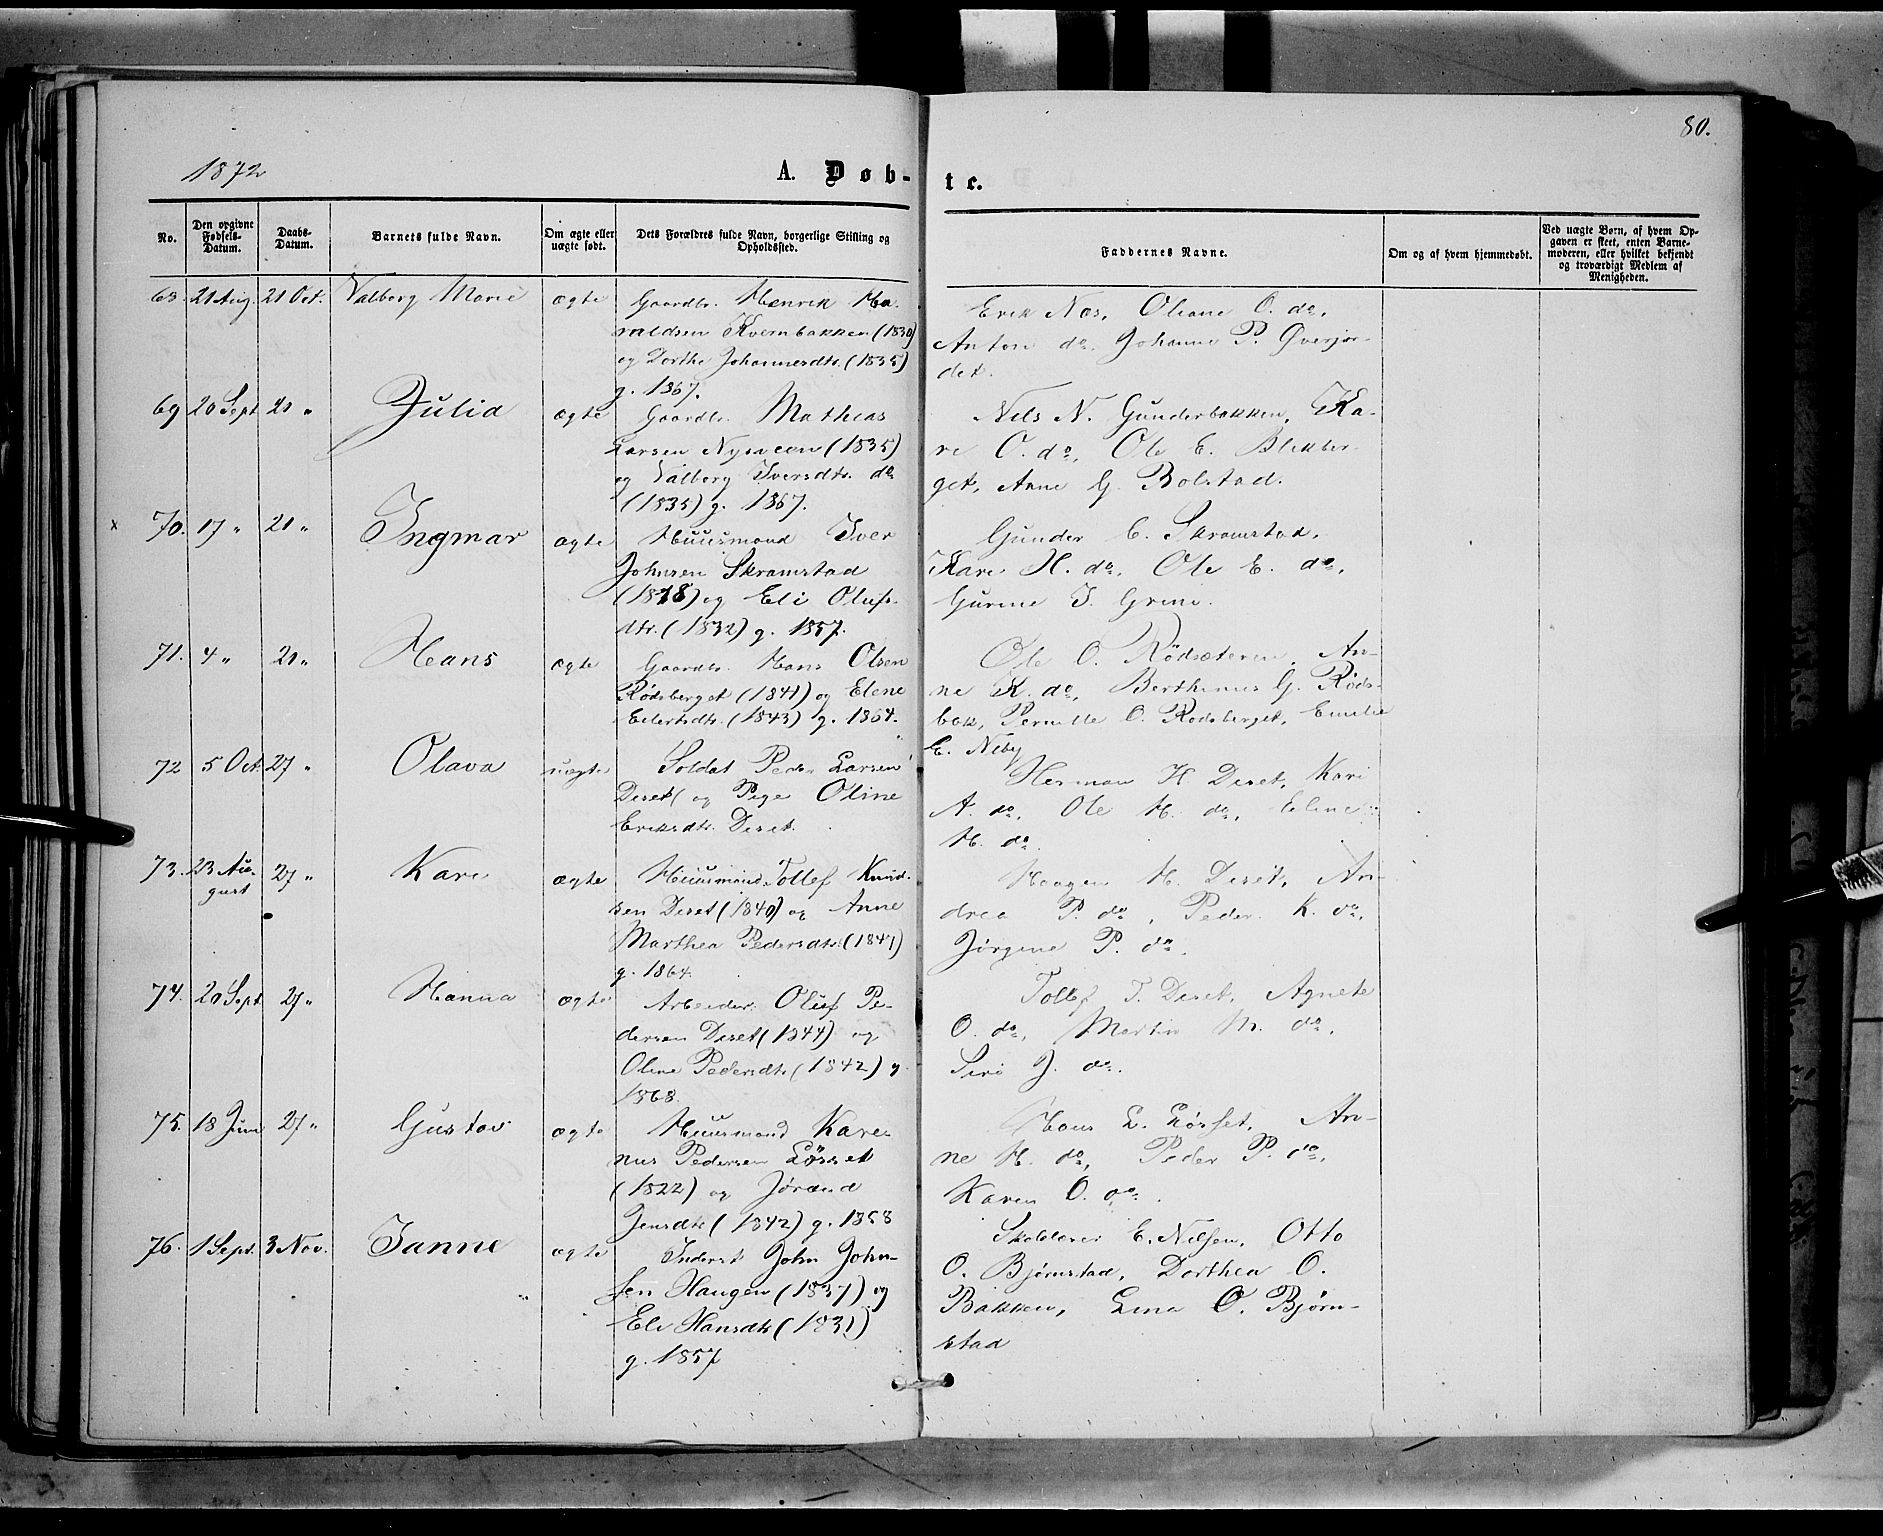 80.
1872
A. Døb-
te.
No.
Den opgivne Fødsels-Datum.
Daabs-Datum.
Barnets fulde Navn.
Om ægte eller uægte født.
Dets Forældres fulde Navn, borgerlige Stilling og Opholdssted.
Faddernes Navne.
Om og af hvem hjemmedøbt.
Ved uægte Børn, af hvem Op-
gaven er skeet, enten Barne-
moderen, eller hvilket bekjendt
og troværdigt Medlem af
Menigheden.
68 21 Aug. 21 Oct. Valborg Marie ægte Gaardbr. Henrik Ha-
raldsen Kvernbakken (1830)
og Dorthe Johannesdtr. (1835)
g. 1867.
Erik Næs, Oliane O. do,
Anton do. Johanne P. Øverjor-
det.
69 20 Sept 20 " Julia ægte Gaardbr. Mathias
Larsen Nysveen (1835)
og Valborg Iversdtr. do
(1835) g. 1867.
Nils N. Gunderbakken, Ka-
ri O. do, Ole E. Blekber-
get, Anne G. Bolstad.
x 70. 17 " 20 " Ingmar ægte Huusmand Iver
Johnsen Skramstad
(1828) og Eli Olufs-
dtr. (1832) g. 1857.
Gunder C. Skramstad,
Kari H. do, Ole E. do,
Gurine I. Grini.
71. 4 " 20 " Hans ægte Gaardbr. Hans Olsen
Rødsberget (1841) og Elene
Eilertsdtr. (1843) g. 1864.
Ole O. Rödsæteren, An-
ne K. do, Berthinus G. Røds-
bak, Pernille O. Rødsberget, Emilie
E. Neby
72 5 Oct. 27 " Olava uægte Soldat Peder Larsen
Deset og Pige Oline
Eriksdtr. Deset.
Herman H Deset, Kari
A. do, Ole H. do, Eline
H. do.
73. 23 Au-
gust 27 " Kari ægte Huusmand Tollef Knud-
sen Deset (1840) og Anne
Marthea Pedersdtr. (1841)
g. 1864.
Haagen H. Deset, An-
drea P. do, Peder K. do,
Jørgine P. do.
74. 20 Sept. 27 " Hanna ægte Arbeider Oluf Pe-
dersen Deset (1844) og
Oline Pedersdtr (1842) g.
1868.
Tollef T. Deset, Agnete
O. do, Martin M. do,
Siri J. do.
75. 18 Juni 27 " Gustav ægte Huusmand Kare-
nus Pedersen Løsset
(1822) og Jørand
Jensdtr (1842) g. 1868
Hans L. Løsset, An-
ne H. do, Peder P. do,
Karen O. do.
76. 1 Sept. 3 Nov. Janne ægte Inderst John John-
sen Haugen (1837) og
Eli Hansdtr (1831)
g. 1857
Skolelærer E. Nilsen, Otto
O. Bjørnstad, Dorthea O.
Bakken, Lina O. Bjørn-
stad